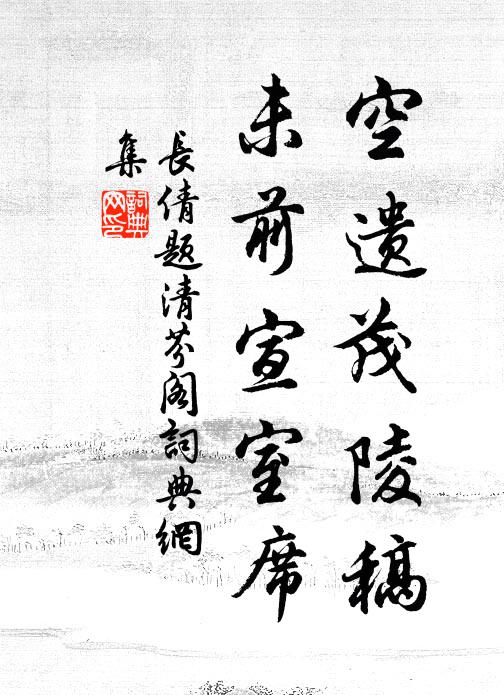 空遺茂陵稿
未前宣室席
長倩題清芬阁詞典網
集
詞典网印